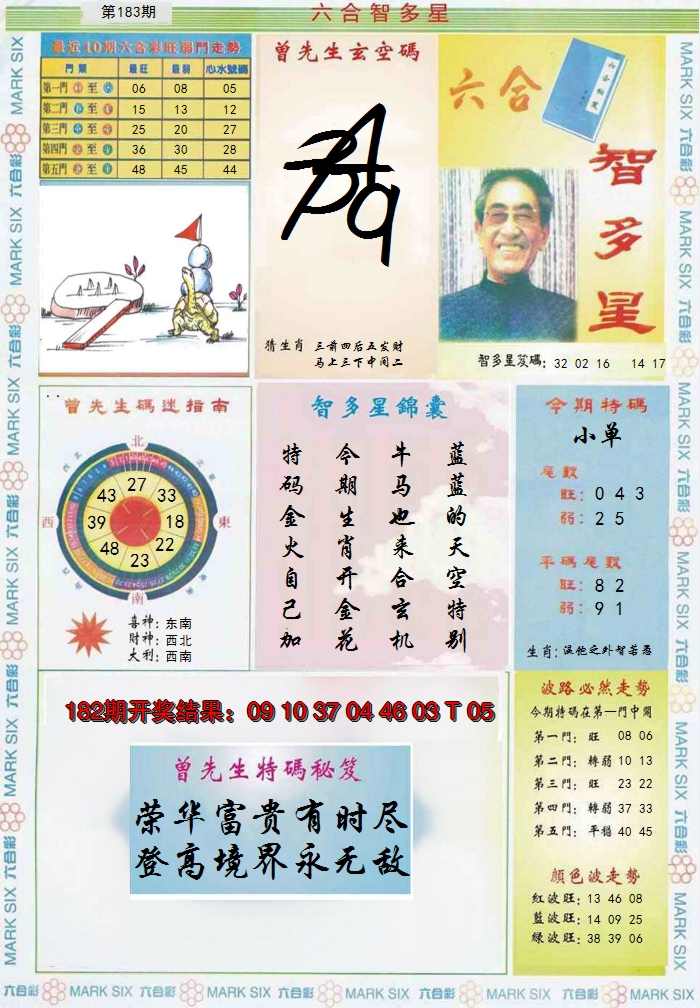 第183期
六合智多星
最近10期六合彩旺弱門走勢
門類 最旺 最弱 心水號碼
第一門 至 06 08 05
第二門 至 15 13 12
第三門 至 25 20 27
第四門 至 36 30 28
第五門 至 48 45 44
曾先生玄空碼
猜生肖 三前四后五发财
马上三下中间二
六合
智多星
智多星笈碼: 32 02 16 14 17
曾先生碼迷指南
北
西
東
南
27
33
18
22
23
48
39
43
喜神: 东南
财神: 西北
大利: 西南
智多星錦囊
蓝蓝的天空特别
牛马也来合玄机
今期生肖开金花
特码金火自己加
今期特碼
小单
尾数
旺: 0 4 3
弱: 2 5
平碼尾数
旺: 8 2
弱: 9 1
生肖: 温他之外智若愚
182期开奖结果：09 10 37 04 46 03 T 05
曾先生特碼秘笈
荣华富贵有时尽
登高境界永无敌
波路必然走势
今期特碼在第一門中開
第一門: 旺 08 06
第二門: 轉弱 10 13
第三門: 旺 23 22
第四門: 轉弱 37 33
第五門: 平穩 40 45
顔色波走势
紅波旺: 13 46 08
藍波旺: 14 09 25
緑波旺: 38 39 06
MARK SIX 六合彩